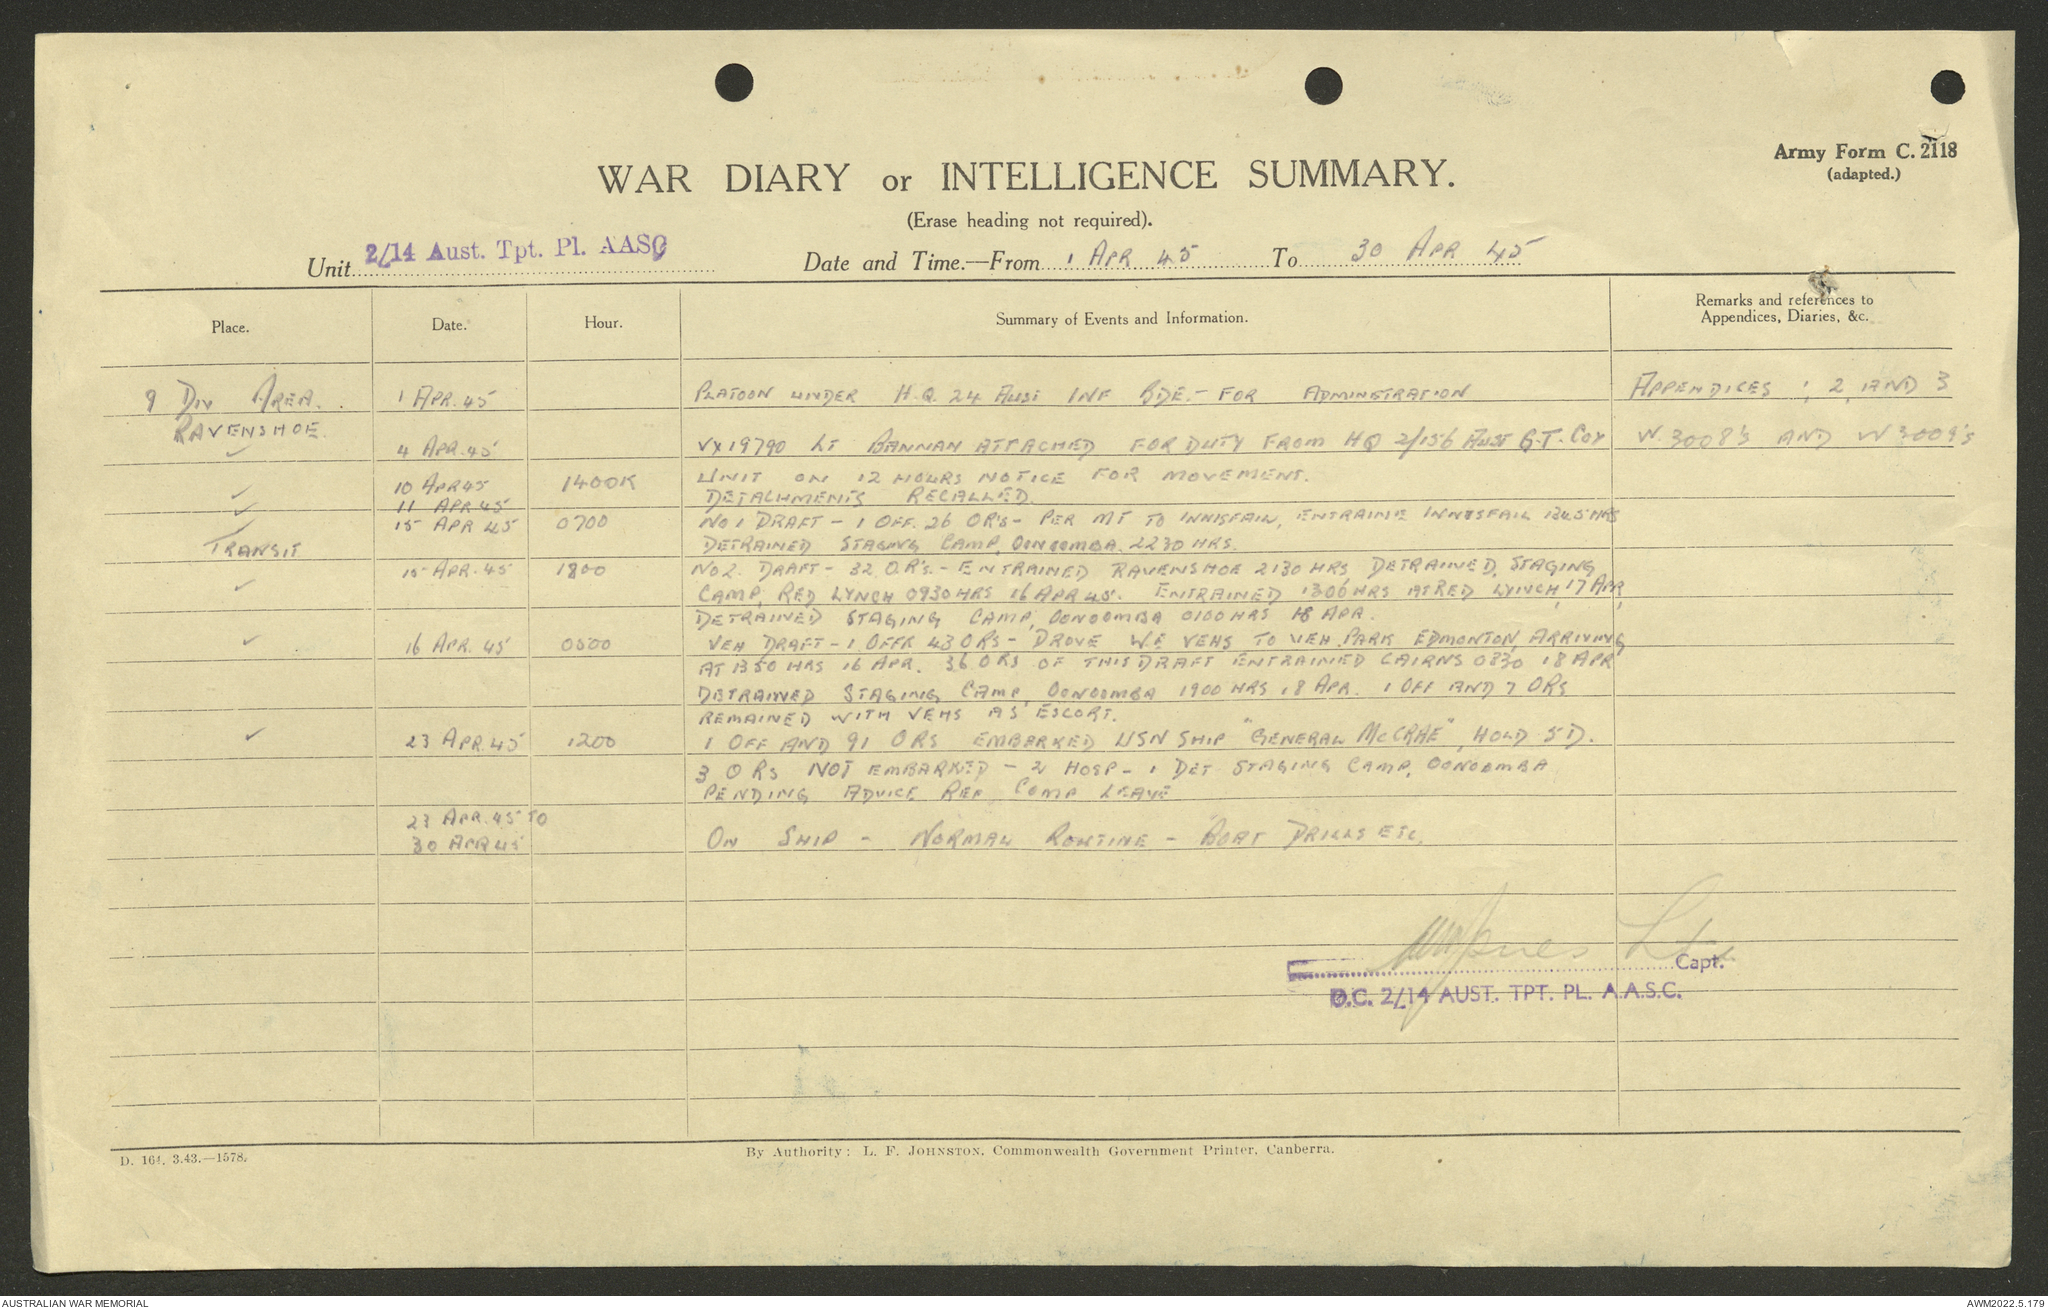 Army Form C. 2118
(adapted.)
WAR DIARY or INTELLIGENCE SUMMARY.
(Erase heading not required).
Unit 2/14 Aust. Tpt. Pl. AASC Date and Time.—From 1 APR 45 To 30 APR 45
Place. Date. Hour. Summary of Events and Information. Remarks and references to
Appendices, Diaries, &c.
9 DIV AREA. 1 APR. 45 PLATOON UNDER H.Q. 24 AUST INF BDE. - FOR ADMINISTRATION APPENDICES 1, 2, AND 3
RAVENSHOE
✓ 4 APR. 45 VX19790 LT BANNAN ATTACHED FOR DUTY FROM HQ 2/156 AUST G.T. COY W.3008's AND W3009's
✓ 10 APR 45 1400K UNIT ON 12 HOURS NOTICE FOR MOVEMENT.
✓ 11 APR. 45 DETACHMENTS RECALLED.
TRANSIT 15 APR 45 0700 NO 1 DRAFT - 1 OFF. 26 OR's - PER MT TO INNISFAIL, ENTRAINE INNISFAIL 1345 HRS
DETRAINED STAGING CAMP, OONOOMBA. 2230 HRS.
✓ 15 APR. 45 1800 NO 2. DRAFT - 32 O.R's. - ENTRAINED RAVENSHOE 2130 HRS DETRAINED, STAGING
CAMP, RED LYNCH 0930 HRS 16 APR 45. ENTRAINED 1306 HRS AT RED LYNCH, 17 APR,
DETRAINED STAGING CAMP, OONOOMBA 0100 HRS 18 APR.
✓ 16 APR. 45 0500 VEH DRAFT - 1 OFFR 43 ORS - DROVE W.E VEHS TO VEH. PARK EDMONTON, ARRIVING
AT 1350 HRS 16 APR. 36 ORS OF THIS DRAFT ENTRAINED CAIRNS 0830 18 APR
DETRAINED STAGING CAMP, OONOOMBA 1900 HRS 18 APR. 1 OFF AND 7 ORS
REMAINED WITH VEHS AS ESCORT.
✓ 23 APR. 45 1200 1 OFF AND 91 ORS EMBARKED USN SHIP "GENERAL McCRAE", HOLD 5D.
3 ORS NOT EMBARKED - 2 HOSP - 1 DET STAGING CAMP, OONOOMBA
PENDING ADVICE REF COMP LEAVE
23 APR. 45 TO
30 APR 45 ON SHIP - NORMAL ROUTINE - BOAT DRILLS ETC.
Jones Lt
Capt.
O.C. 2/14 AUST. TPT. PL. A.A.S.C.
D. 164. 3.43.—1578.
By Authority: L. F. JOHNSTON, Commonwealth Government Printer, Canberra.
AUSTRALIAN WAR MEMORIAL AWM2022.5.179